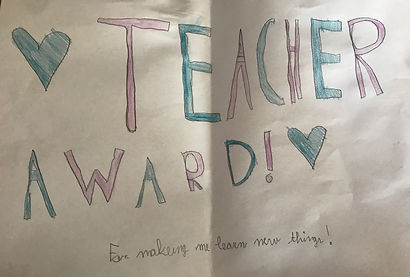 TEACHER
AWARD!
For makeing me learn new things!